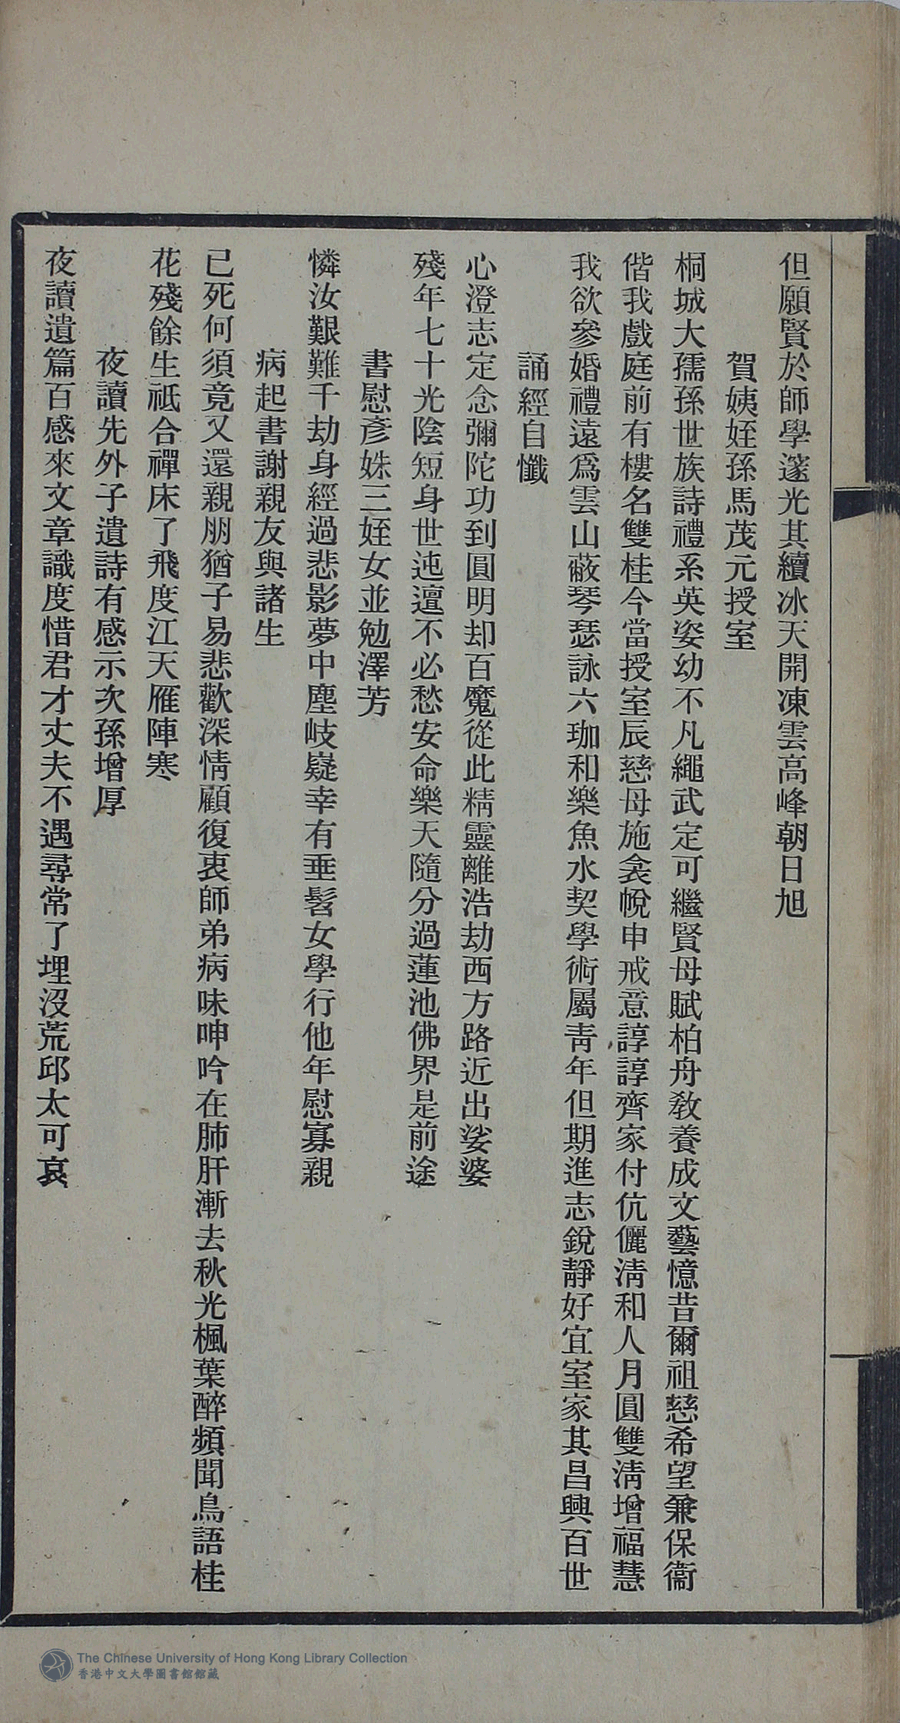 但願賢於師學邃光其續冰天開凍雲高峰朝日旭
賀姨姪孫馬茂元授室
桐城大孺孫世族詩禮系英姿幼不凡繩武定可繼賢母賦柏舟敎養成文藝憶昔爾祖慈希望兼保衞
偕我戲庭前有樓名雙桂今當授室辰慈母施衾帨申戒意諄諄齊家付伉儷淸和人月圓雙淸增福慧
我欲參婚禮遠爲雲山蔽琴瑟詠六珈和樂魚水契學術屬靑年但期進志銳靜好宜室家其昌興百世
誦經自懺
心澄志定念彌陀功到圓明却百魔從此精靈離浩劫西方路近出娑婆
殘年七十光陰短身世迍邅不必愁安命樂天隨分過蓮池佛界是前途
書慰彥姝三姪女並勉澤芳
憐汝艱難千劫身經過悲影夢中塵岐嶷幸有垂髫女學行他年慰寡親
病起書謝親友與諸生
已死何須竟又還親朋猶子易悲歡深情顧復衷師弟病味呻吟在肺肝漸去秋光楓葉醉頻聞鳥語桂
花殘餘生祗合禪床了飛度江天雁陣寒
夜讀先外子遺詩有感示次孫增厚
夜讀遺篇百感來文章識度惜君才丈夫不遇尋常了埋沒荒邱太可哀
The Chinese University of Hong Kong Library Collection
香港中文大學圖書館館藏